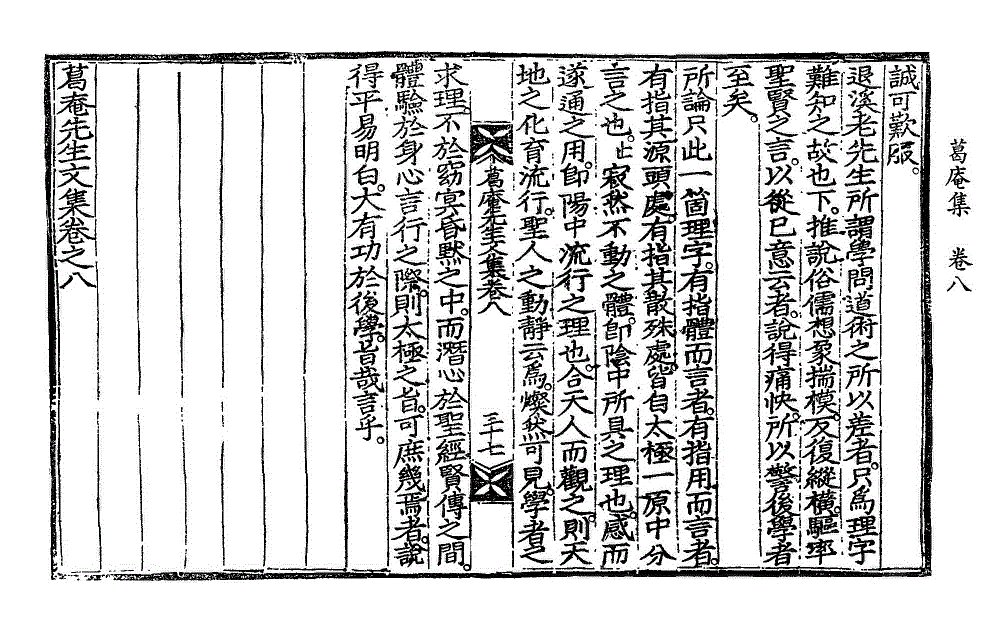 葛庵集　卷八
誠可歎服。
退溪老先生所謂學問道術之所以差者。只爲理字
難知之故也下。推說俗儒想象揣模。反復縱橫。驅率
聖賢之言。以從已意云者。說得痛快。所以警後學者
至矣。
所論只此一箇理字。有指體而言者。有指用而言者。
有指其源頭處。有指其散殊處。皆自太極一原中分
言之也。止 寂然不動之體。卽陰中所具之理也。感而
遂通之用。卽陽中流行之理也。合天人而觀之。則天
地之化育流行。聖人之動靜云爲。燦然可見。學者之
葛庵先生文集卷八
三十七
求理。不於窈冥昏黙之中。而潛心於聖經賢傳之間。
體驗於身心言行之際。則太極之旨。可庶幾焉者。說
得平易明白。大有功於後學。旨哉言乎。
葛庵先生文集卷之八